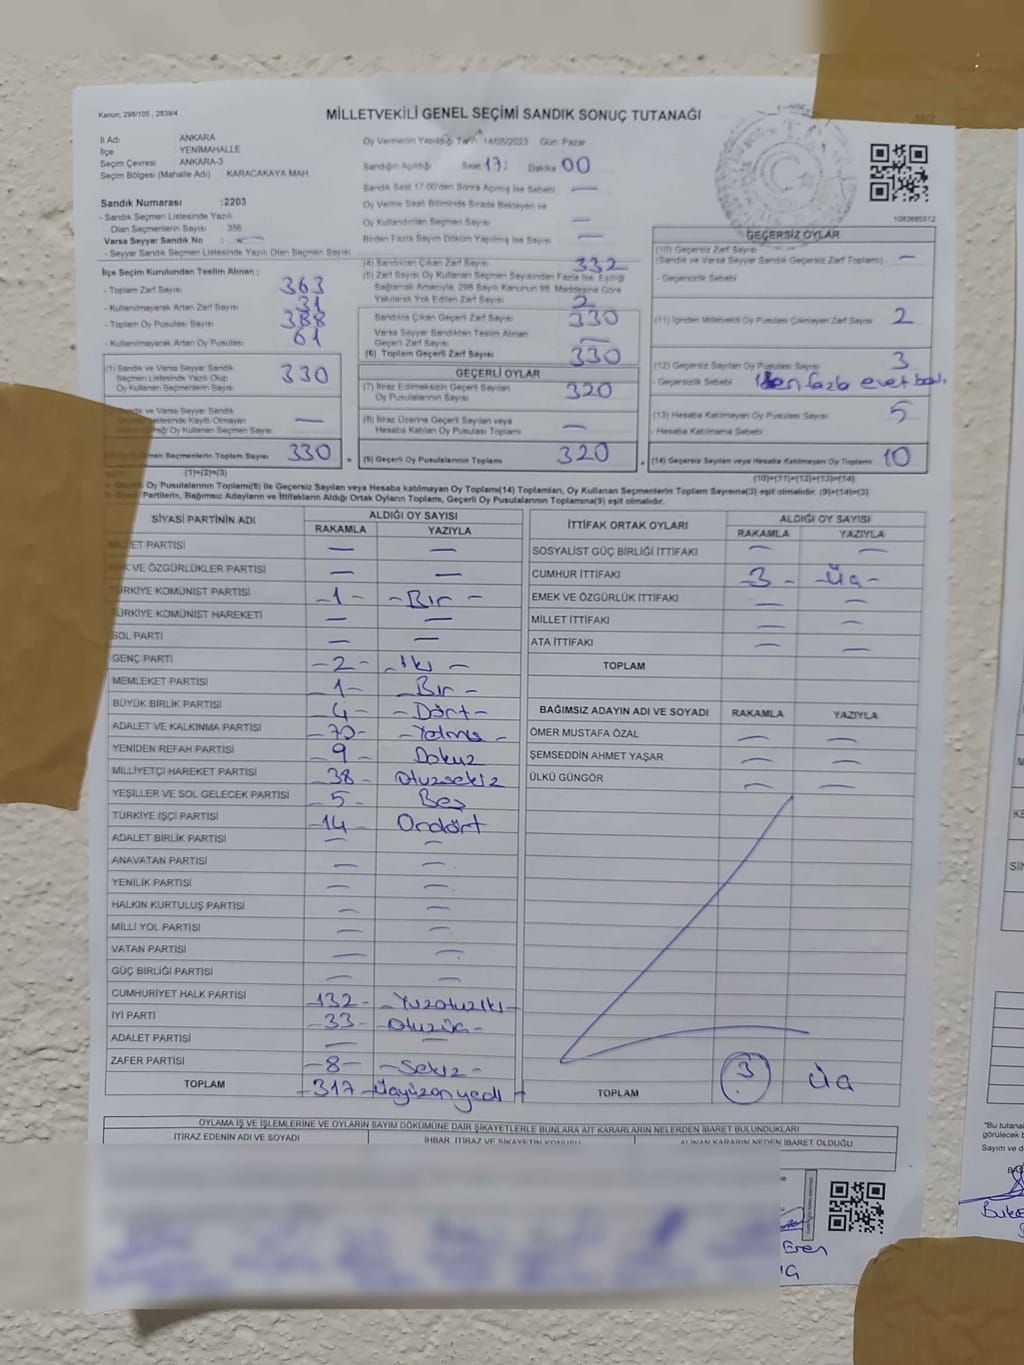 Kanun; 298/105, 2839/4
MİLLETVEKİLİ GENEL SEÇİMİ SANDIK SONUÇ TUTANAĞI
İl Adı : ANKARA
İlçe : YENİMAHALLE
Seçim Çevresi : ANKARA-3
Seçim Bölgesi (Mahalle Adı) : KARACAKAYA MAH.
Oy Vermenin Yapıldığı Tarih : 14/05/2023 Gün: Pazar
Sandığın Açıldığı Saat 17: Dakika 00
Sandık Saat 17.00'den Sonra Açılmış İse Sebebi —
Oy Verme Saati Bitiminde Sırada Bekleyen ve
Oy Kullandırılan Seçmen Sayısı —
Birden Fazla Sayım Döküm Yapılmış İse Sayısı —
1083680512
Sandık Numarası :2203
- Sandık Seçmen Listesinde Yazılı
Olan Seçmenlerin Sayısı : 356
Varsa Seyyar Sandık No : —
- Seyyar Sandık Seçmen Listesinde Yazılı Olan Seçmen Sayısı :
İlçe Seçim Kurulundan Teslim Alınan ;
- Toplam Zarf Sayısı 363
- Kullanılmayarak Artan Zarf Sayısı 31
- Toplam Oy Pusulası Sayısı 388
- Kullanılmayarak Artan Oy Pusulası 61
(1) Sandık ve Varsa Seyyar Sandık
Seçmen Listesinde Yazılı Olup
Oy Kullanan Seçmenlerin Sayısı 330
ve Varsa Seyyar Sandık
Listesinde Kayıtlı Olmayan
Oy Kullanan Seçmen Sayısı —
Kullanan Seçmenlerin Toplam Sayısı 330
(1)+(2)=(3)
(4) Sandıktan Çıkan Zarf Sayısı 332
(5) Zarf Sayısı Oy Kullanan Seçmen Sayısından Fazla İse, Eşitliği
Sağlamak Amacıyla, 298 Sayılı Kanunun 98. Maddesine Göre
Yakılarak Yok Edilen Zarf Sayısı 2
Sandıkta Çıkan Geçerli Zarf Sayısı 330
Varsa Seyyar Sandıktan Teslim Alınan
Geçerli Zarf Sayısı —
(6) Toplam Geçerli Zarf Sayısı 330
GEÇERLİ OYLAR
(7) İtiraz Edilmeksizin Geçerli Sayılan
Oy Pusulalarının Sayısı 320
(8) İtiraz Üzerine Geçerli Sayılan veya
Hesaba Katılan Oy Pusulası Toplamı —
(9) Geçerli Oy Pusulalarının Toplamı 320
GEÇERSİZ OYLAR
(10) Geçersiz Zarf Sayısı
(Sandık ve Varsa Seyyar Sandık Geçersiz Zarf Toplamı) —
- Geçersizlik Sebebi
(11) İçinden Milletvekili Oy Pusulası Çıkmayan Zarf Sayısı 2
(12) Geçersiz Sayılan Oy Pusulası Sayısı 3
- Geçersizlik Sebebi fazla evet
(13) Hesaba Katılmayan Oy Pusulası Sayısı 5
- Hesaba Katılmama Sebebi
(14) Geçersiz Sayılan veya Hesaba Katılmayan Oy Toplamı 10
(10)+(11)+(12)+(13)=(14)
Oy Pusulalarının Toplamı(9) ile Geçersiz Sayılan veya Hesaba katılmayan Oy Toplamı(14) Toplamları, Oy Kullanan Seçmenlerin Toplam Sayısına(3) eşit olmalıdır. (9)+(14)=(3)
Partilerin, Bağımsız Adayların ve İttifakların Aldığı Ortak Oyların Toplamı, Geçerli Oy Pusulalarının Toplamına(9) eşit olmalıdır.
SİYASİ PARTİNİN ADI ALDIĞI OY SAYISI
RAKAMLA YAZIYLA
MİLLET PARTİSİ — —
HAK VE ÖZGÜRLÜKLER PARTİSİ — —
TÜRKİYE KOMÜNİST PARTİSİ -1- -Bir-
TÜRKİYE KOMÜNİST HAREKETİ — —
SOL PARTİ — —
GENÇ PARTİ -2- -iki-
MEMLEKET PARTİSİ -1- -Bir-
BÜYÜK BİRLİK PARTİSİ -4- -Dört-
ADALET VE KALKINMA PARTİSİ -70- -Yetmiş-
YENİDEN REFAH PARTİSİ -9 Dokuz
MİLLİYETÇİ HAREKET PARTİSİ -38- Otuzsekiz
YEŞİLLER VE SOL GELECEK PARTİSİ -5- Beş
TÜRKİYE İŞÇİ PARTİSİ -14- Ondört
ADALET BİRLİK PARTİSİ — —
ANAVATAN PARTİSİ — —
YENİLİK PARTİSİ — —
HALKIN KURTULUŞ PARTİSİ — —
MİLLİ YOL PARTİSİ — —
VATAN PARTİSİ — —
GÜÇ BİRLİĞİ PARTİSİ — —
CUMHURİYET HALK PARTİSİ -132- -Yüzotuziki-
İYİ PARTİ -33- -Otuzüç-
ADALET PARTİSİ — —
ZAFER PARTİSİ -8- -Sekiz-
TOPLAM -317- Üçyüzonyedi-
İTTİFAK ORTAK OYLARI ALDIĞI OY SAYISI
RAKAMLA YAZIYLA
SOSYALİST GÜÇ BİRLİĞİ İTTİFAKI — —
CUMHUR İTTİFAKI -3- -Üç-
EMEK VE ÖZGÜRLÜK İTTİFAKI — —
MİLLET İTTİFAKI — —
ATA İTTİFAKI — —
TOPLAM
BAĞIMSIZ ADAYIN ADI VE SOYADI RAKAMLA YAZIYLA
ÖMER MUSTAFA ÖZAL — —
ŞEMSEDDİN AHMET YAŞAR — —
ÜLKÜ GÜNGÖR — —
TOPLAM 3 Üç
OYLAMA İŞ VE İŞLEMLERİNE VE OYLARIN SAYIM DÖKÜMÜNE DAİR ŞİKAYETLERLE BUNLARA AİT KARARLARIN NELERDEN İBARET BULUNDUKLARI
İTİRAZ EDENİN ADI VE SOYADI İHBAR, İTİRAZ VE ŞİKAYETİN KONUSU ALINAN KARARIN NEDEN İBARET OLDUĞU
Eren
"Bu tutana
görülecek b
Sayım ve d